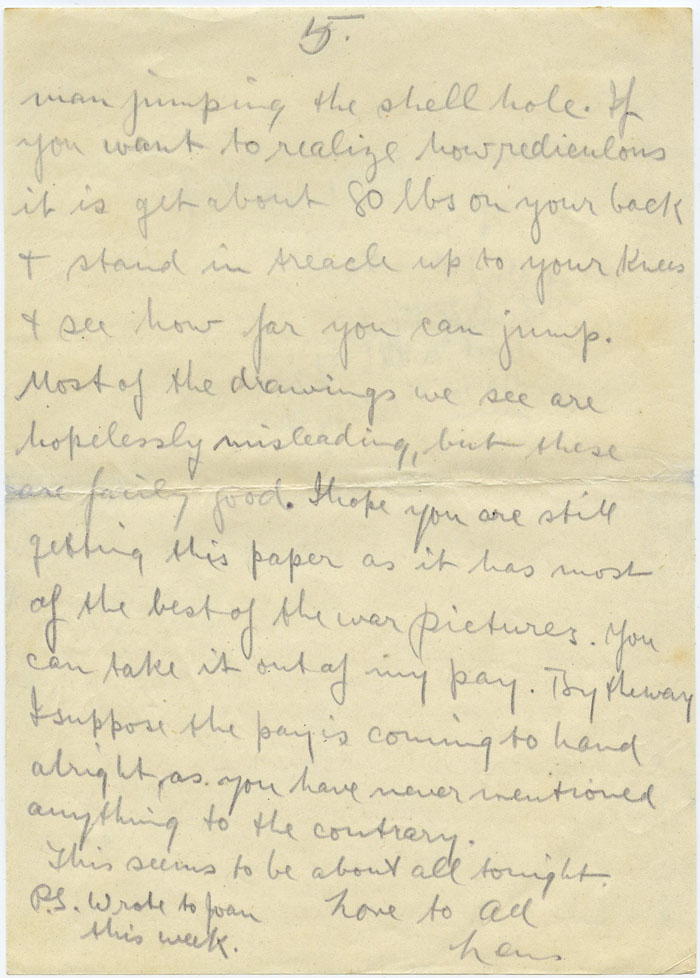 5.
man jumping the shell hole. If
you want to realize how rediculous
it is get about 80 lbs on your back
+ stand in treacle up to your knees
+ see how far you can jump.
Most of the drawings we see are
hopelessly misleading, but these
are fairly good. I hope you are still
getting this paper as it has most
of the best of the war pictures. You
can take it out of my pay. By the way
I suppose the pay is coming to hand
alright, as you have never mentioned
anything to the contrary.
This seems to be about all tonight.
P.S. Wrote to Joan
this week.
Love to all